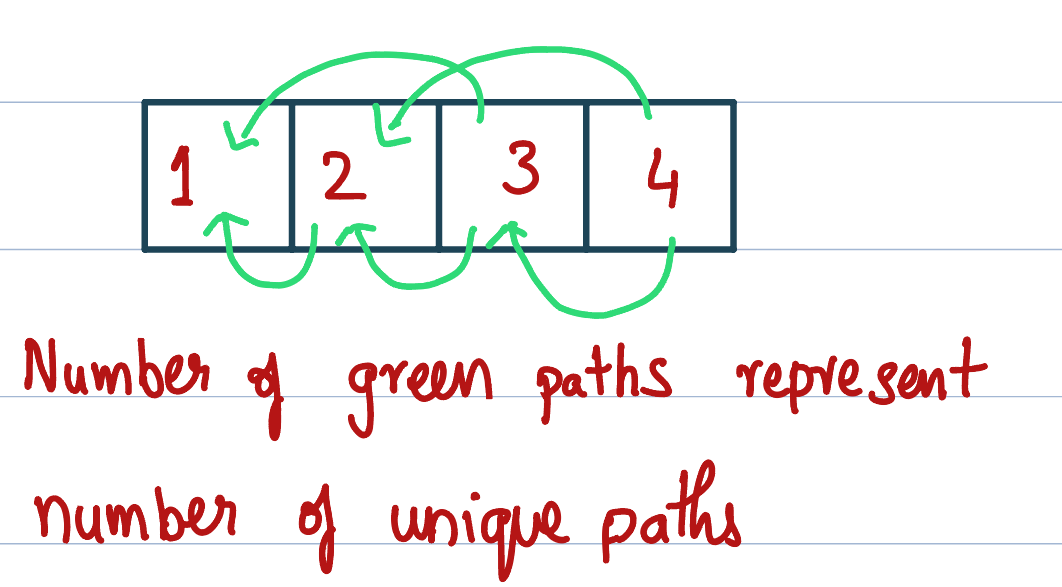 1 2 3 4
Number of green paths represent
number of unique paths